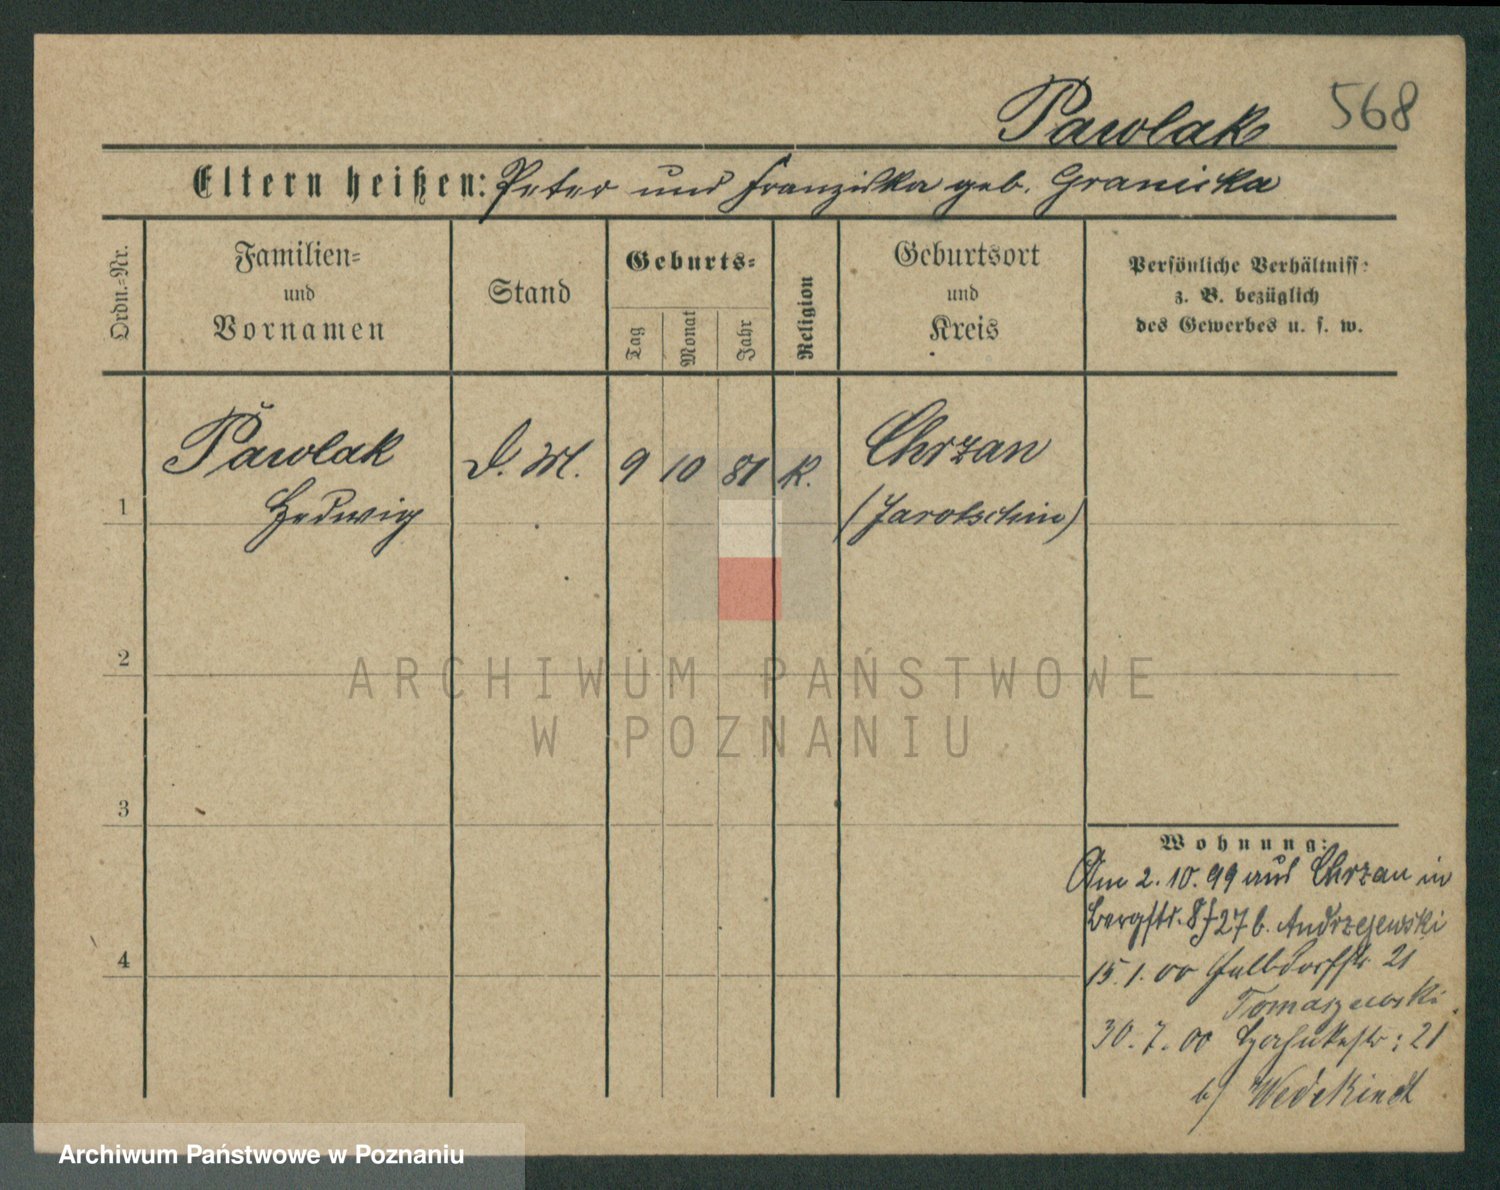 Pawlak 568
Eltern heißen: Peter und Franziska geb. Granicka
Ordn.-Nr.
Familien-
und
Vornamen
Stand
Geburts-
Tag
Monat
Jahr
Religion
Geburtsort
und
Kreis
Persönliche Verhältniss:
z. B. bezüglich
des Gewerbes u. s. w.
1
Pawlak
Hedwig
D. M.
9 10 81
K.
Chrzan
(Jarotschin)
2
ARCHIWUM PAŃSTWOWE
W POZNANIU
3
Wohnung:
Am 2. 10. 99 aus Chrzan in
Bergstr. 27 b. Andrzejewski
4
15. 1. 00 21
Tomaszewski
30. 7. 00 21
b/ Wedekindt
Archiwum Państwowe w Poznaniu